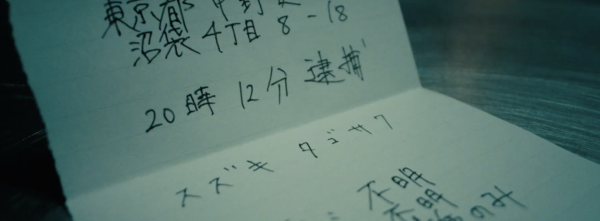 東京都 中野
沼袋 4丁目 8-18
20時 12分 逮捕
スズキ タゴサク
不明
不明 のみ